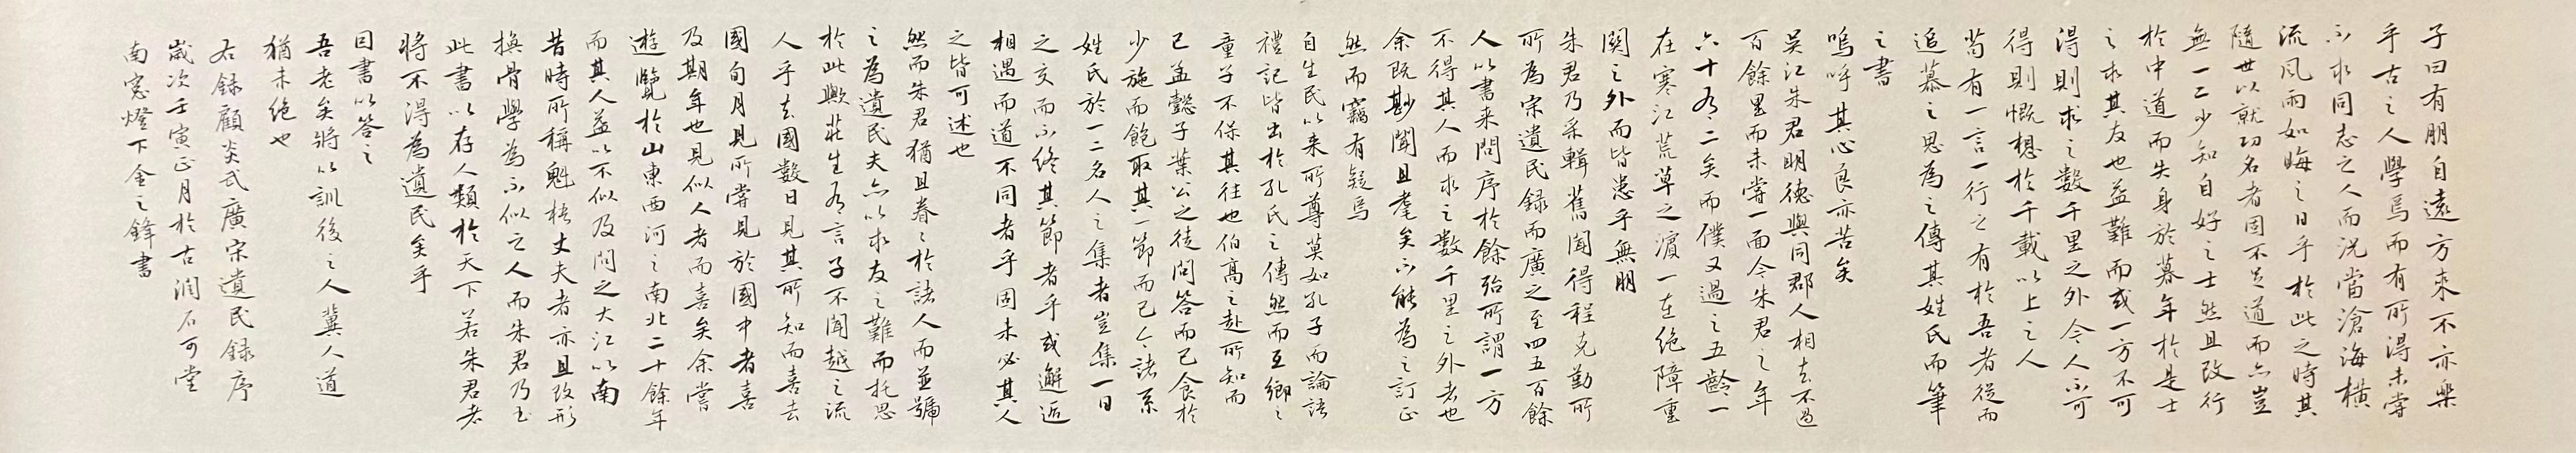 子曰有朋自遠方來不亦樂
乎古之人學焉而有所得未嘗
不求同志之人而況當滄海橫
流風雨如晦之日乎於此之時其
隨世以就功名者固不足道而亦豈
無一二少知自好之士然且改行
於中道而失身於暮年於是士
之求其友也益難而或一方不可
得則求之數千里之外今人不可
得則慨想於千載以上之人
苟有一言一行之有於吾者從而
追慕之思為之傳其姓氏而筆
之書
嗚呼其心良亦苦矣
吳江朱君明德與同郡人相去不過
百餘里而未嘗一面今朱君之年
六十有二矣而僕又過之五齡一
在寒江荒草之濱一在絕障重
關之外而皆患乎無朋
朱君乃采輯舊聞得程克勤所
所為宋遺民錄而廣之至四五百餘
人以書來問序於餘殆所謂一方
不得其人而求之數千里之外者也
余既尟聞且耄矣不能為之訂正
然而竊有疑焉
自生民以來所尊莫如孔子而論語
禮記皆出於孔氏之傳然而互鄉之
童子不保其往也伯高之赴所知而
已孟懿子葉公之徒問答而已食於
少施而飽取其一節而已今諸系
姓氏於一二名人之集者豈集一日
之交而不終其節者乎或邂逅
相遇而道不同者乎固未必其人
之皆可述也
然而朱君猶且眷々於諸人而並號
之為遺民夫亦以求友之難而托思
於此歟莊生有言子不聞越之流
人乎去國數日見其所知而喜去
國旬月見所嘗見於國中者喜
及期年也見似人者而喜矣余嘗
遊覽於山東西河之南北二十餘年
而其人益以不似及問之大江以南
昔時所稱魁梧丈夫者亦且改形
換骨學為不似之人而朱君乃為
此書以存人類於天下若朱君者
將不得為遺民矣乎
因書以答之
吾老矣將以訓後之人冀人道
猶未絕也
右錄顧炎武廣宋遺民錄序
歲次壬寅正月於古潤石可堂
南窓燈下金之鋒書